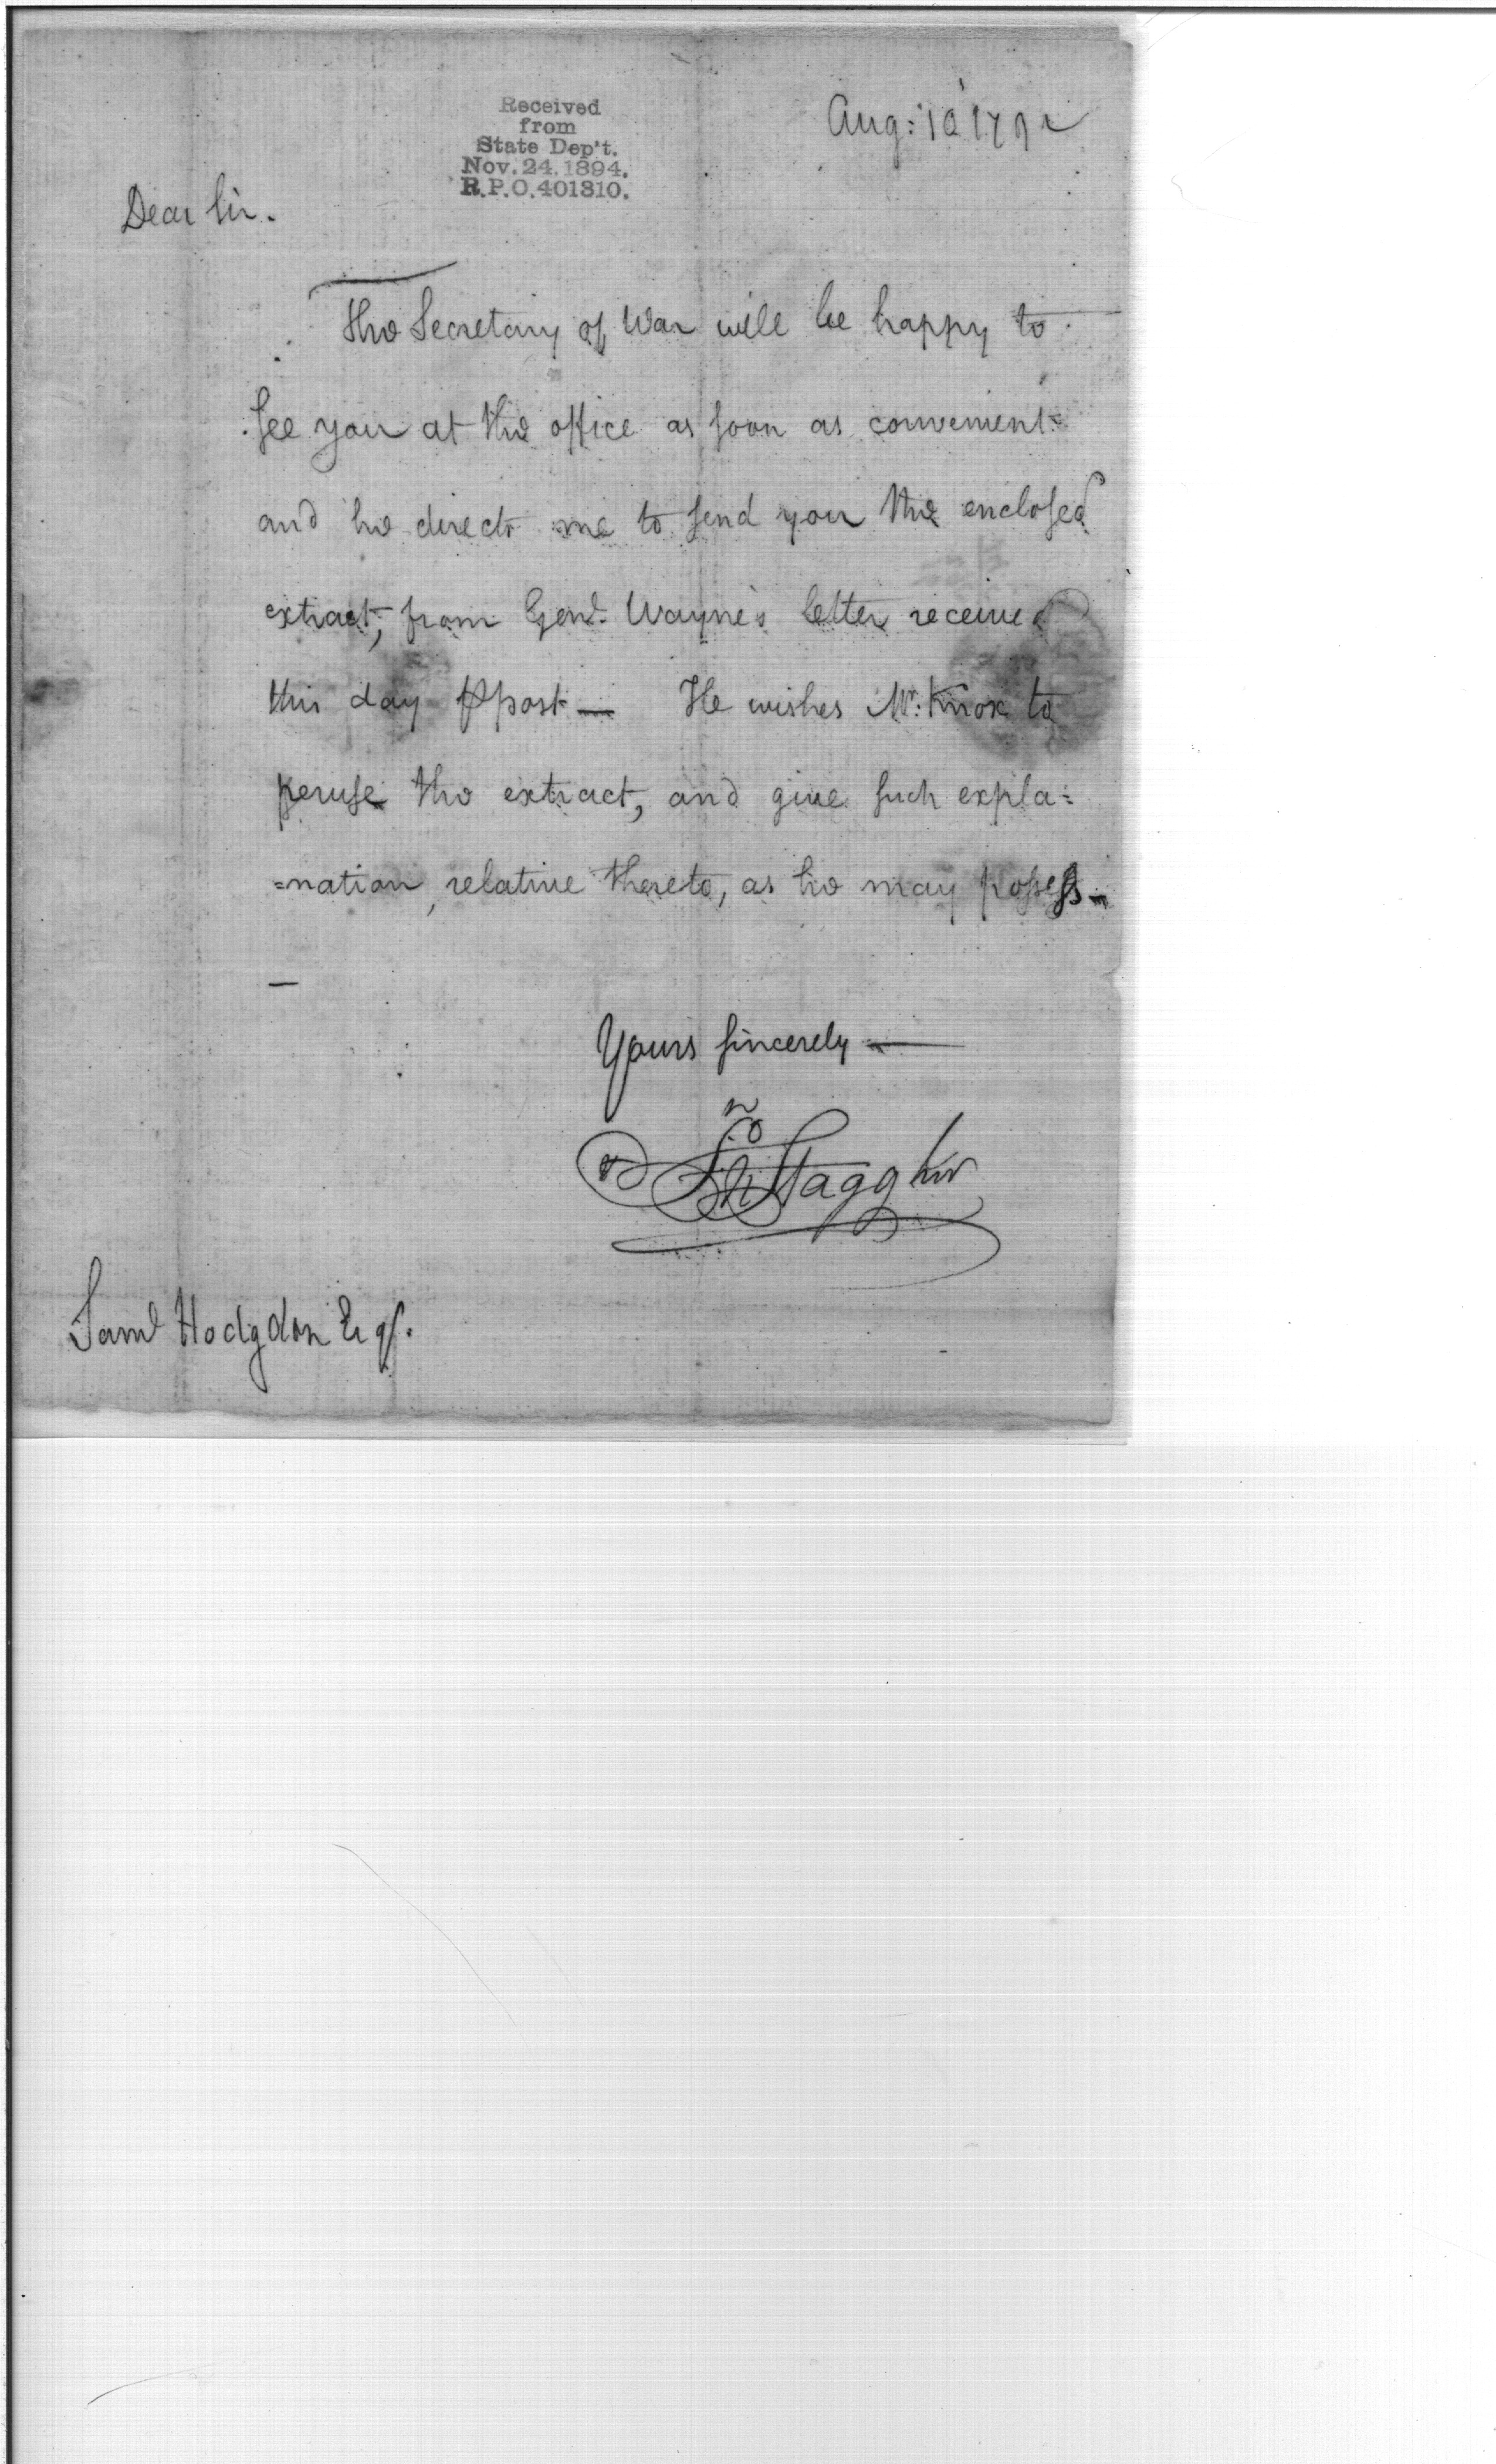 Received
from
State Dep't.
Nov. 24. 1894.
R.P.O. 401310.
Aug: 10 1792
Dear Sir.
The Secretary of War will be happy to
see you at the office as soon as convenient
and he directs me to send you the enclosed
extract, from Genl. Wayne's letter received
this day ⅌ post — He wishes Mr. Knox to
peruse the extract, and give such expla=
=nation, relative thereto, as he may possess —
—
Yours sincerely —
Jno Stagg Junr
Saml Hodgdon Esqr.